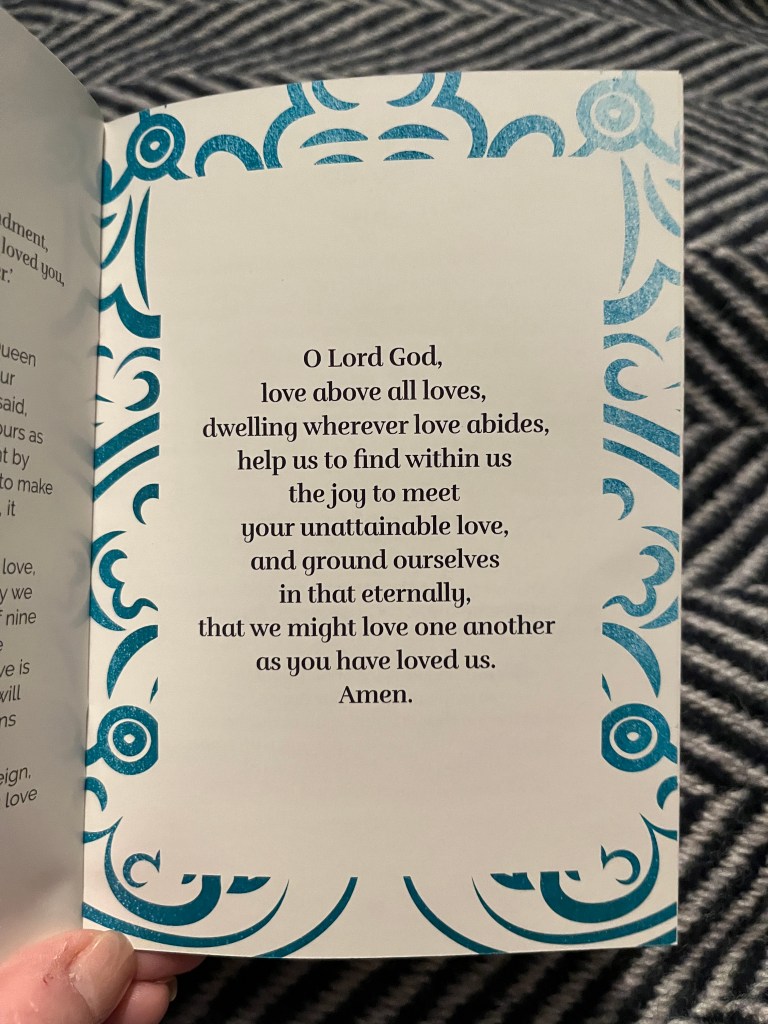 ndment,
loved you,
r.'
Queen
ur
said,
ours as
nt by
to make
, it
love,
y we
f nine
e
ve is
will
ns
eign,
love
O Lord God,
love above all loves,
dwelling wherever love abides,
help us to find within us
the joy to meet
your unattainable love,
and ground ourselves
in that eternally,
that we might love one another
as you have loved us.
Amen.